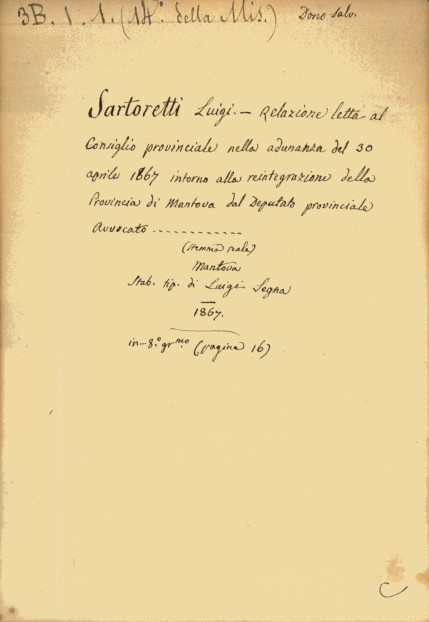 3B. 1. 1. (14° della Mis.) Dono Salv.
Sartoretti Luigi. — Relazione letta al
Consiglio provinciale nella adunanza del 30
aprile 1867 intorno alla reintegrazione della
Provincia di Mantova dal Deputato provinciale
Avvocato ............
(stemma reale)
Mantova
Stab. tip. di Luigi Segna
1867.
in-8.° gr.mo (pagina 16)
C